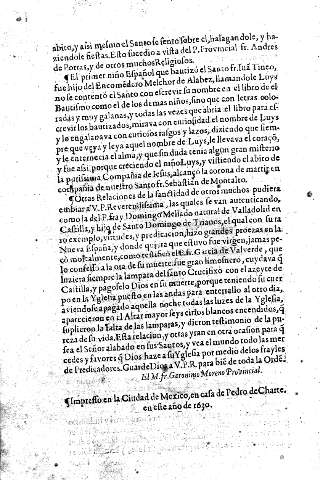 abito, y assi mesmo el Santo se sento sobre el, halagandole, y ha-
ziendole fiestas. Esto sucedio a vista del P. Provincial fr. Andres
de Porras, y de otros muchos Religiosos.
¶ El primer niño Español que bautizò el Santo fr. Iuã Tineo,
fue hijo del Encomẽdero Melchor de Alabez, llamandole Luys
no se contentò el Santo con escrevir su nombre en el libro de el
Bautismo como el de los demas niños, sino que con letras colo-
radas y muy galanas, y todas las veces que abria el libro para es-
crevir los bautizados, mirava con curiosidad el nombre de Luys
y lo engalanava con curiosos rasgos y lazos, diziendo que siem-
pre que veya y leya aquel nombre de Luys, le llevava el coraçõ,
y le enternecia el alma, y que sin duda tenia algun gran misterio
y fue assi, porque creciendo el niño Luys, y vistiendo el abito de
la Compañia de Jesus, alcançò la corona de martir en
compañia de nuestro Santo fr. Sebastian de Montalto.
¶ Otras Relaciones de la santidad de otros muchos pudiera
embiar a V. P. Reverendissima, las quales se van autenticando,
como la del P. fray Domingo Mellado natural de Valladolid en
Castilla, y hijo de Santo Domingo de Trianos, el qual con su ra
ro exemplo, virtudes, y predicacion, hizo grandes proezas en la
Nueva España, y donde quiera que estuvo fue virgen, jamas pe-
cò mortalmente, como testificò el P. fr. Garcia de Valverde, que
lo confessò a la ora de su muerte: fue gran limosnero, cuydava q̃
luziera siempre la lampara del santo Crucifixo con el azeyte de
Castilla, y pagoselo Dios en su muerte, porque teniendo su cuer
po en la Yglesia puesto en las andas para enterrallo al otro dia,
aviendose apagado aquella noche todas las luzes de la Yglesia,
aparecieron en el Altar mayor seys cirios blancos encendidos, q̃
suplieron la falta de las lamparas, y dieron testimonio de la pu-
reza de su vida. Esta relacion, y otras yran en otra ocasion para q̃
sea el Señor alabado en sus Santos, y vea el mundo todo las mer
cedes y favores q̃ Dios haze a su Yglesia por medio de los frayles
de Predicadores. Guarde Dios a V. P. R. para biẽ de toda la Ordẽ.
El M. fr. Geronimo Moreno Provincial.
¶ Impresso en la Ciudad de Mexico, en casa de Pedro de Charte,
en este año de 1630.